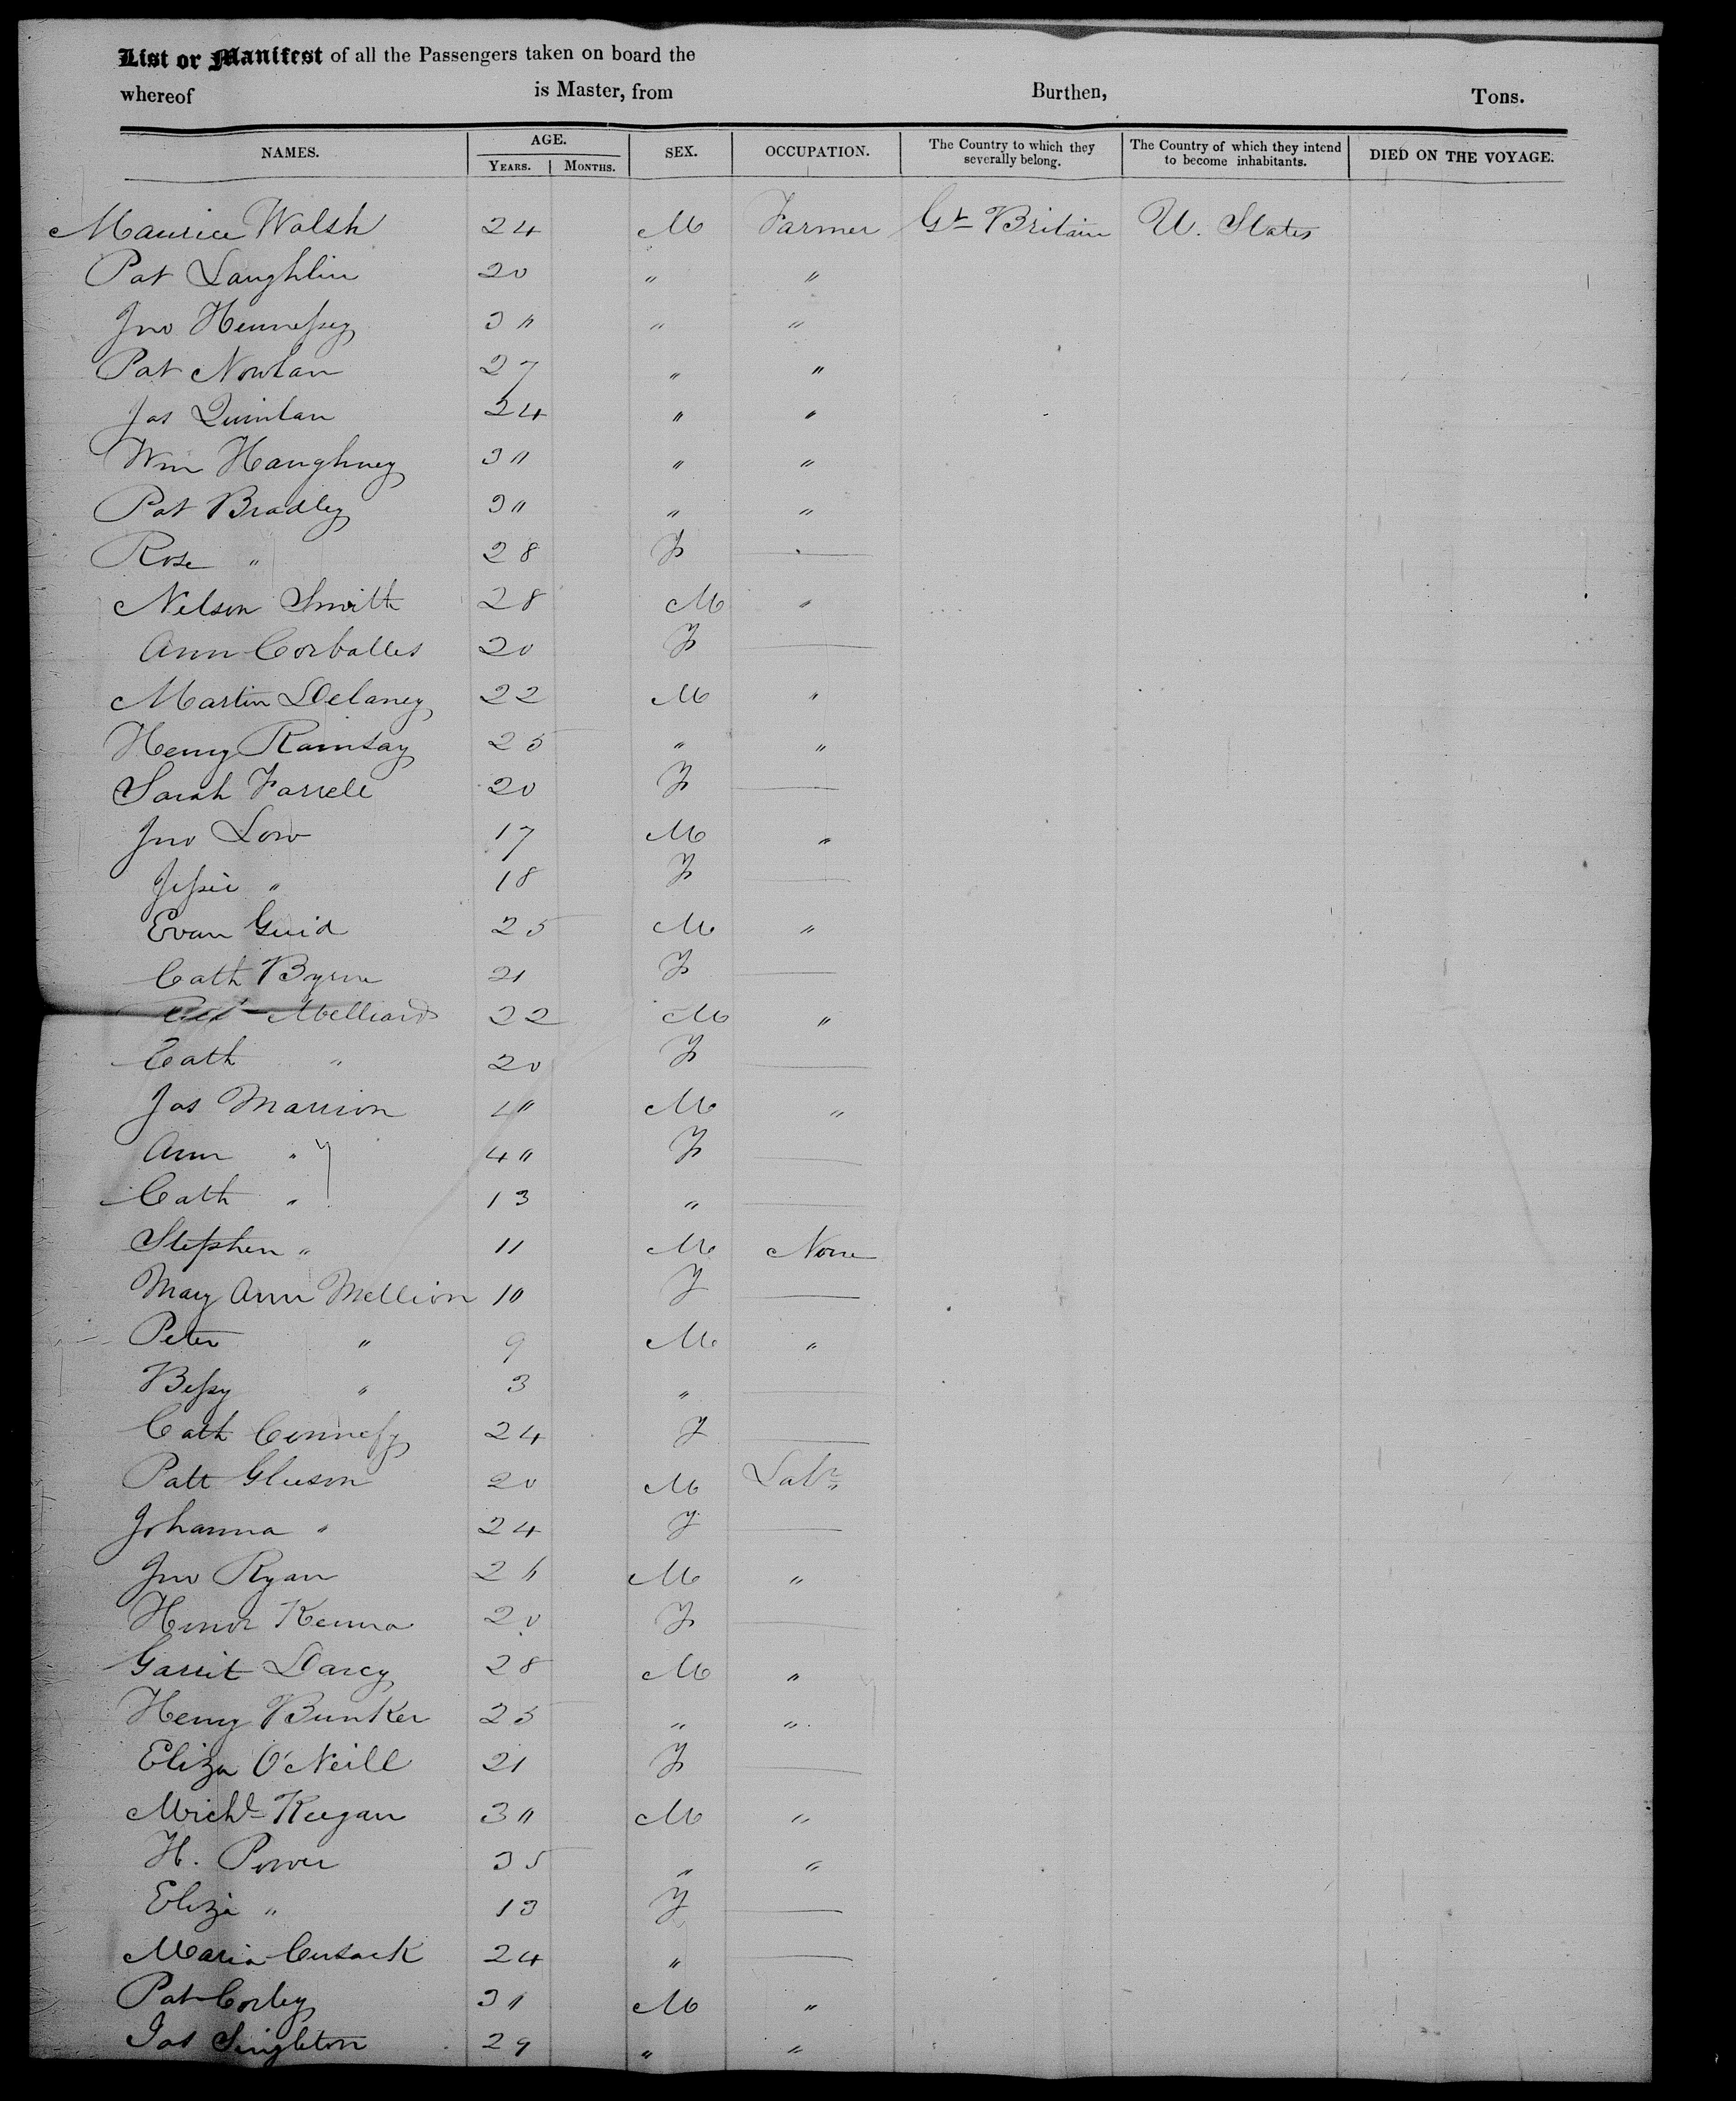 List or Manifest of all the Passengers taken on board the
whereof is Master, from Burthen, Tons.
NAMES. AGE. SEX. OCCUPATION. The Country to which they severally belong. The Country of which they intend to become inhabitants. DIED ON THE VOYAGE.
YEARS. MONTHS.
Maurice Walsh 24 M Farmer Gt Britain U. States
Pat Laughlin 20 " "
Jno Hennessey 3" " "
Pat Nowlan 27 " "
Jas Quinlan 24 " "
Wm Haughney 3" " "
Pat Bradley 3" " "
Rose " 28 F —
Nelson Smith 28 M "
Ann Corballes 20 F —
Martin Delaney 22 M "
Henry Ramsay 25 " "
Sarah Farrell 20 F —
Jno Low 17 M "
Jessie " 18 F —
Evan Guid 25 M "
Cath Byrne 21 F —
Melliard 22 M "
Cath " 20 F —
Jas Marrion 4" M "
Ann " 4" F —
Cath " 13 " —
Stephen " 11 M None
Mary Ann Mellion 10 F —
Peter " 9 M "
Bessy " 3 " —
Cath 24 F —
Patt Gleeson 20 M Labr
Johanna " 24 F —
Jno Ryan 26 M "
Honor Kenna 20 F —
Garrit Darcy 28 M "
Henry Bunker 25 " "
Eliza O'Neill 21 F —
Michl Keegan 3" M "
H. Power 35 " "
Eliza " 13 F —
Maria Cusack 24 " —
Pat Corley 3" M "
Jas Singleton 29 " "